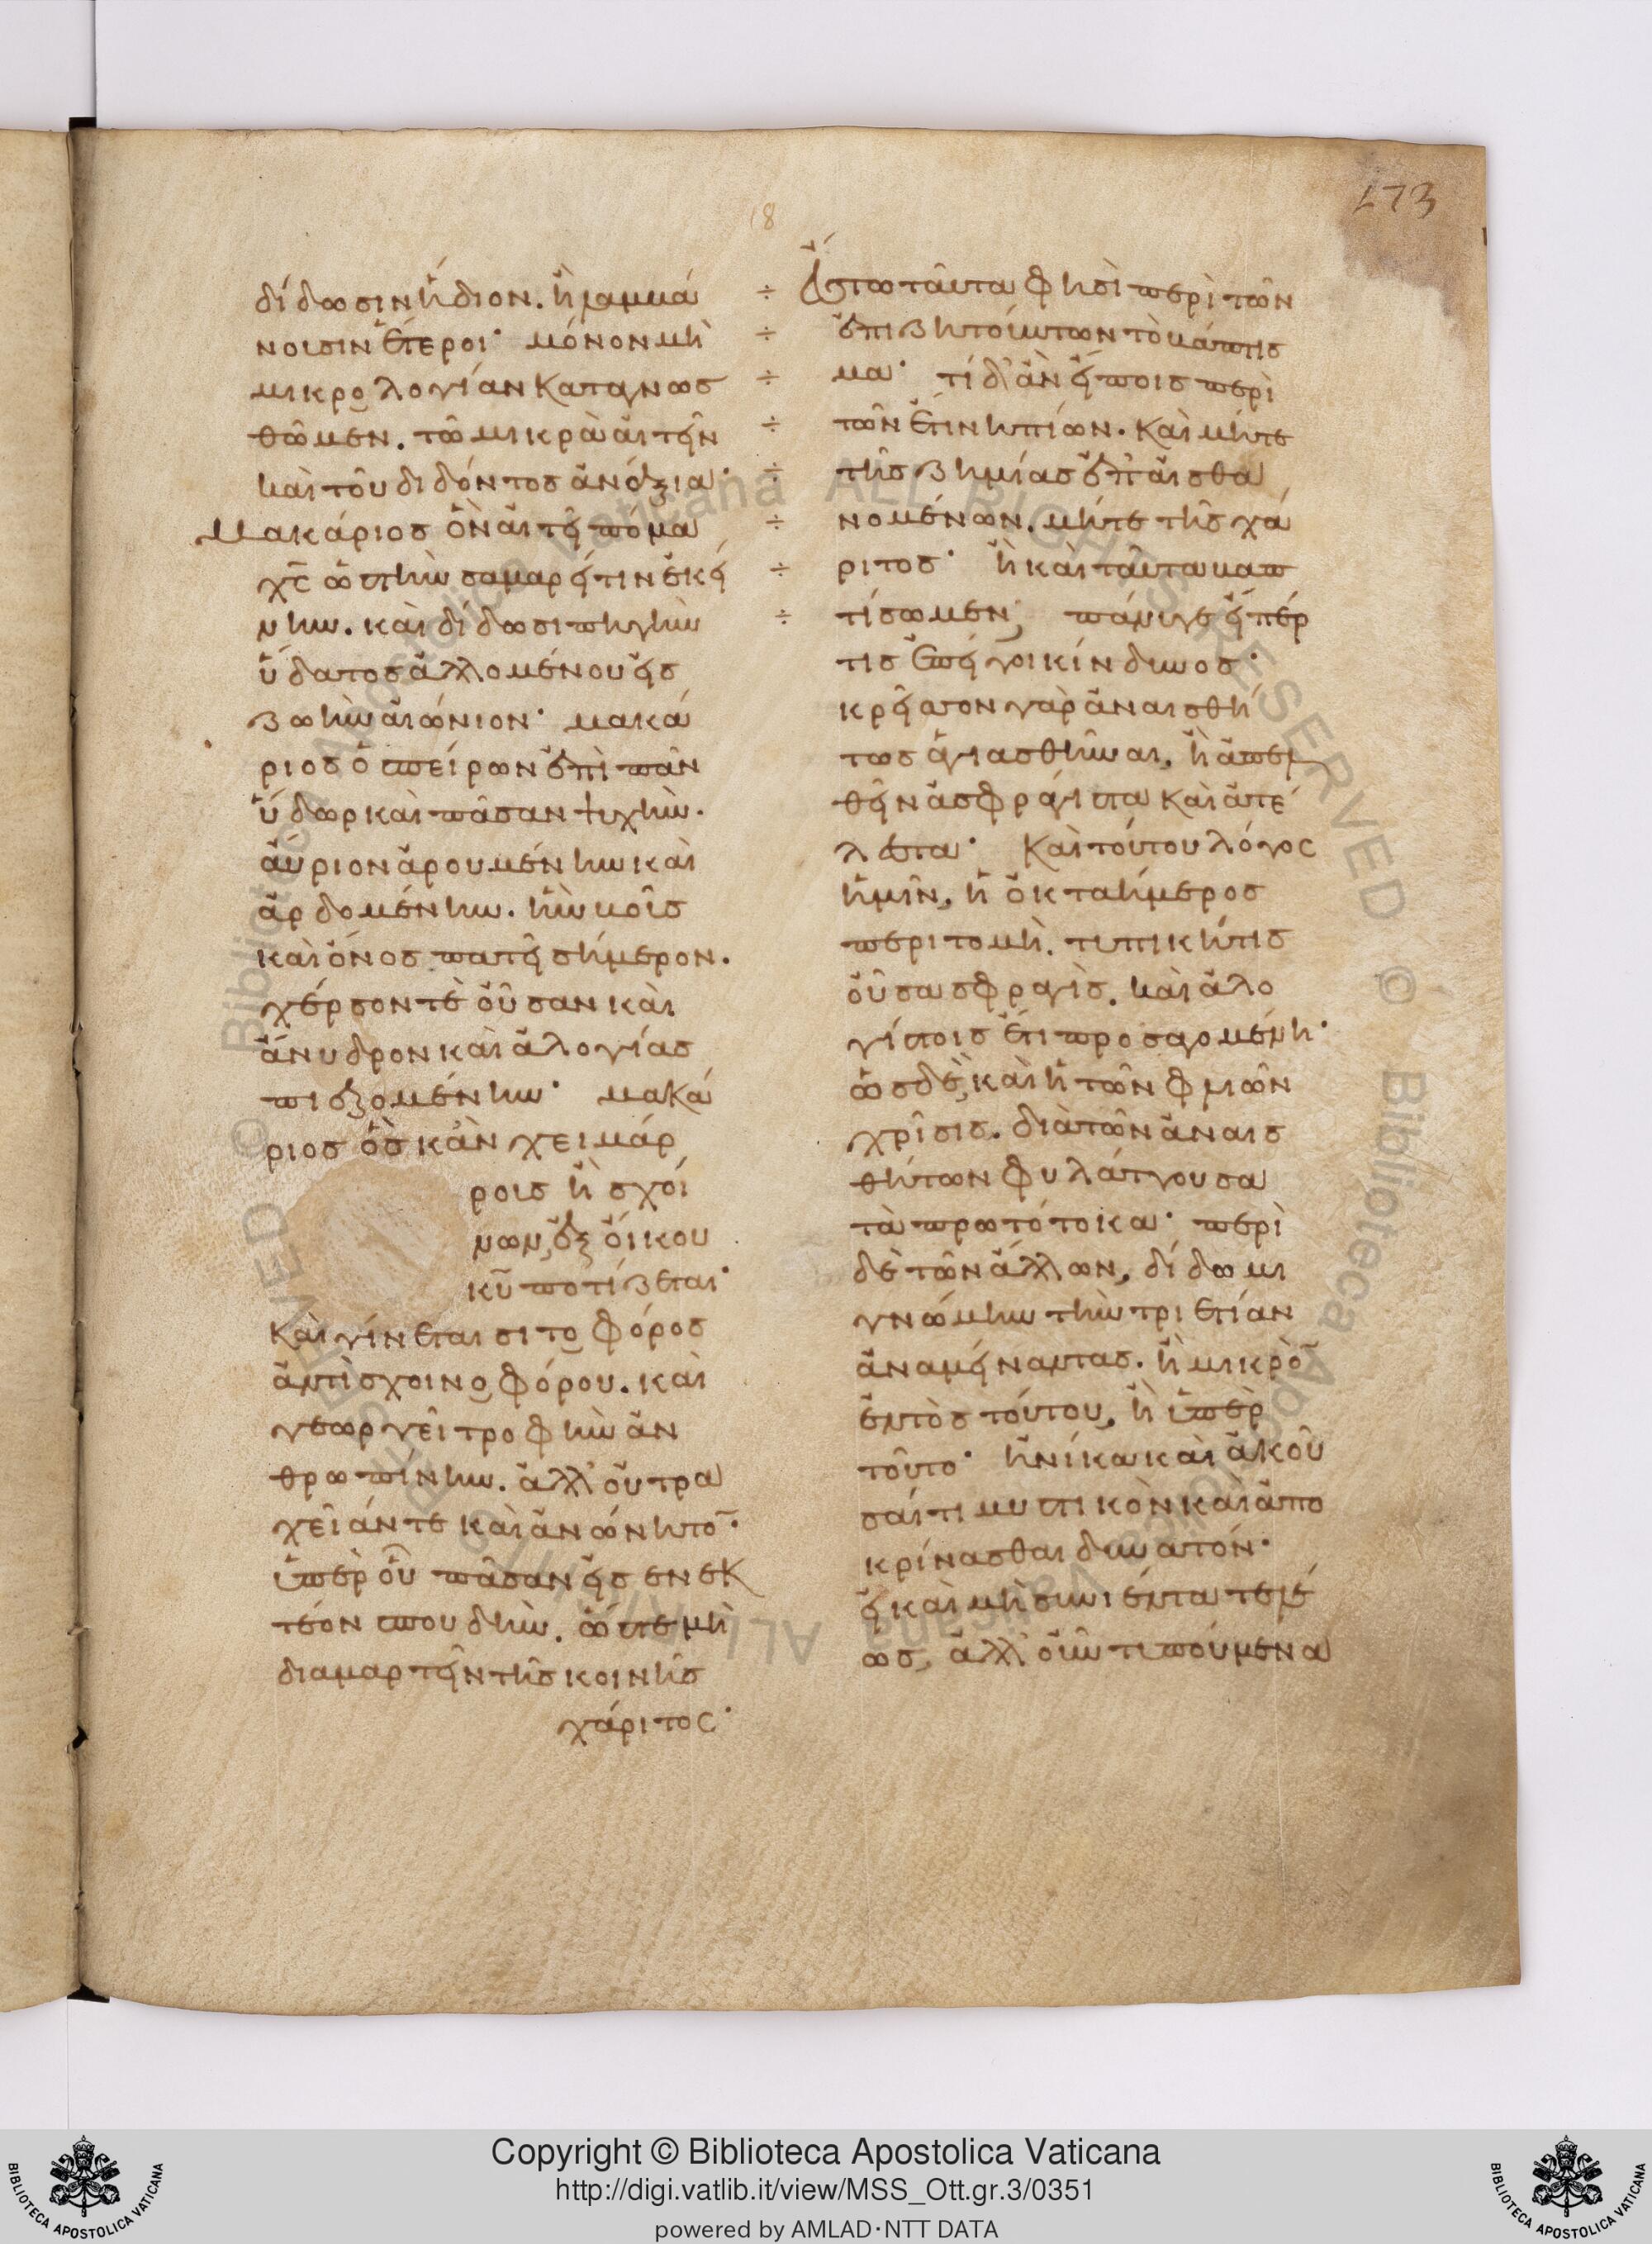 173
18
δίδωσιν ἥδιον. ἢ λαμβά
νουσιν ἕτεροι· μόνον μὴ
μικρολογίαν καταγνωσ
θῶμεν. τῶ μικρὰ αἰτεῖν
καὶ τοῦ διδόντος ἀνάξια·
Μακάριος ὃν αἰτεῖ πόμα
χ̅ς̅ ὡς τὴν σαμαρεῖτιν ἐκεί
νην. καὶ δίδωσι πηγὴν
ὕδατος ἁλλομένου εἰς
ζωὴν αἰώνιον· μακά
ριος ὁ σπείρων ἐπὶ πᾶν
ὕδωρ καὶ πᾶσαν ψυχὴν.
αὔριον ἀρουμένην καὶ
ἀρδομένην. ἣν βοῦς
καὶ ὄνος πατεῖ σήμερον.
χέρσον τὲ οὖσαν καὶ
ἄνυδρον καὶ ἀλογίας
πιεζομένην· μακά
ριος ὃς κἂν χειμάρ
ροις ἢ σχοί
νων, ἐξ οἴκου
κ̅υ̅ ποτίζεται·
Καὶ γίνεται σιτοφόρος
ἀντὶ σχοινοφόρου. καὶ
γεωργεῖ τροφὴν ἀν
θρωπίνην. ἀλλ' οὐ τρα
χεῖάν τε καὶ ἀνόνητο̅·
ὑπὲρ οὗ πᾶσαν εἰσενεκ
τέον σπουδὴν. ὥστε μὴ
διαμαρτεῖν τῆς κοινῆς
χάριτος·
Ἔστω ταῦτα φησὶ περὶ τῶν
ἐπιζητούντων τὸ βάπτισ
μα· τί δ' ἂν εἴποις περὶ
τῶν ἔτι νηπίων. καὶ μήτε
τῆς ζημίας ἐπαισθα
νομένων. μήτε τῆς χά
ριτος· ἢ καὶ ταῦτα βαπ
τίσωμεν; πάνυγε εἴπέρ
τις ἐπείγοι κίνδυνος·
κρεῖττον γὰρ ἀναισθή
τως ἁγιασθῆναι, ἢ ἀπελ
θεῖν ἀσφράγιστα καὶ ἀτέ
λεστα· Καὶ τούτου λόγος
ἡμῖν, ἡ ὀκταήμερος
περιτομὴ. τυπικήτις
οὖσα σφραγὶς. καὶ ἀλο
γίστοις ἔτι προσαγομένη·
ὡς δὲ, καὶ ἡ τῶν φλιῶν
χρῖσις. διὰ τῶν ἀναισ
θήτων φυλάττουσα
τὰ πρωτότοκα· περὶ
δὲ τῶν ἄλλων, δίδωμι
γνώμην τὴν τριετίαν
ἀναμείναντας. ἢ μικρὸ̅
ἐντὸς τούτου, ἢ ὑπὲρ
τοῦτο· ἡνίκα καὶ ἀκοῦ
σαί τι μυστικὸν καὶ ἀπο
κρίνασθαι δυνατόν·
εἰ καὶ μὴ συνιέντα τελέ
ως, ἀλλ' οὖν τυπούμενα
Copyright © Biblioteca Apostolica Vaticana
http://digi.vatlib.it/view/MSS_Ott.gr.3/0351
powered by AMLAD·NTT DATA
BIBLIOTECA APOSTOLICA VATICANA
BIBLIOTECA APOSTOLICA VATICANA